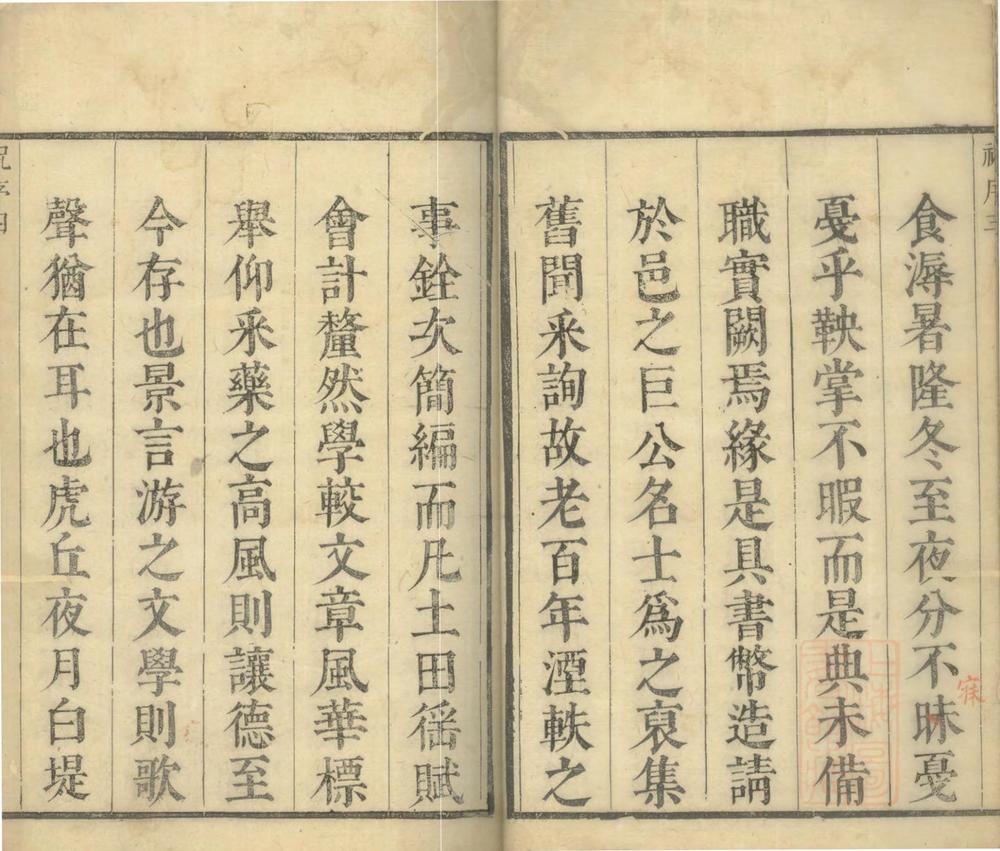 食溽暑隆冬至夜分不昧憂
寐
憂乎鞅掌不暇而是典未備
職實闕焉緣是具書幣造請
於邑之巨公名士爲之裒集
舊聞采詢故老百年湮軼之
事銓次簡編而凡土田徭賦
會計釐然學較文章風華標
舉仰采藥之高風則讓德至
今存也景言游之文學則歌
聲猶在耳也虎丘夜月白堤